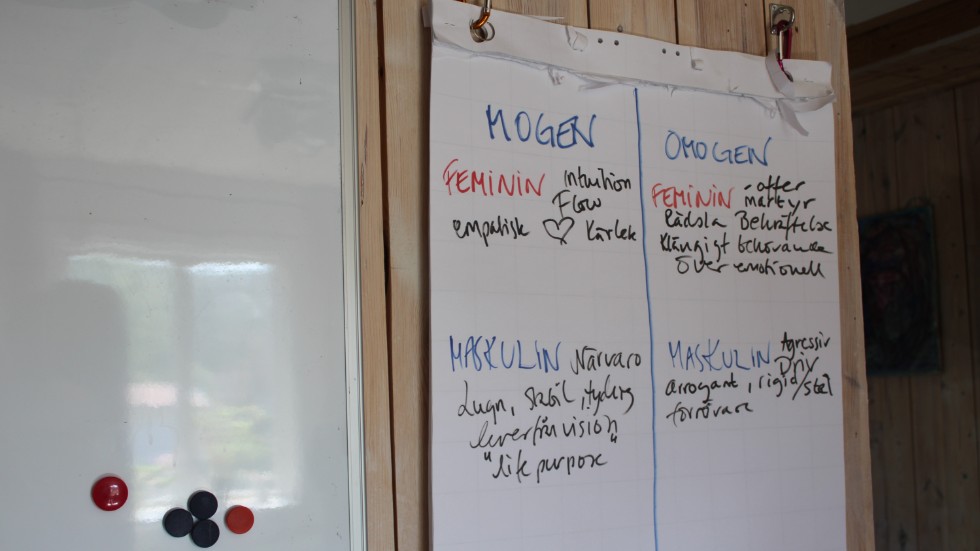 MOGEN
FEMININ intuition
Flow
empatisk ♡ Kärlek
MASKULIN Närvaro
Lugn, stabil, tydlig
lever från vision
"life purpose"
OMOGEN
FEMININ - offer
martyr
Rädsla Bekräftelse
Klängigt behövande
Över emotionell
MASKULIN Agressiv
Driv
arrogant, rigid/stel
förrövare